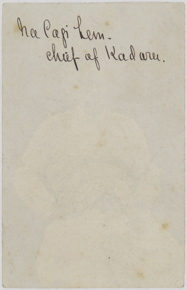 Na Capi Lem.
chief of Kadaru.